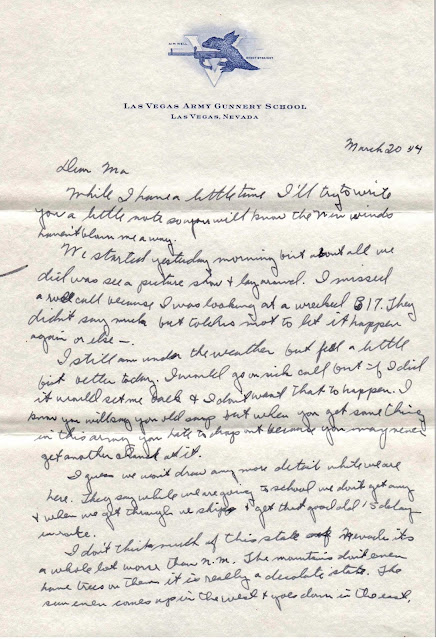 AIM WELL
SHOOT STRAIGHT
LAS VEGAS ARMY GUNNERY SCHOOL
LAS VEGAS, NEVADA
March 20 44
Dear Ma
While I have a little time I'll try to write
you a little note so you will know the winds
haven't blown me away.
We started yesterday morning but about all we
did was see a picture show & lay around. I missed
a roll call because I was looking at a wrecked B17. They
didn't say much but told us not to let it happen
again or else —.
I still am under the weather but feel a little
bit better today. I would go on sick call but if I did
it would set me back & I don't want that to happen. I
know you will say you old but when you get some thing
in this army you hate to drop out because you may never
get another chance at it.
I guess we won't draw any more detail while we are
here. They say while we are going to school we don't get any
& when we get through we ship & get that good old 15 delay
in route.
I don't think much of this state of Nevada its
a whole lot worse than N.M. The mountains don't even
have trees on them it is really a desolate state. The
sun even comes up in the west & goes down in the east.